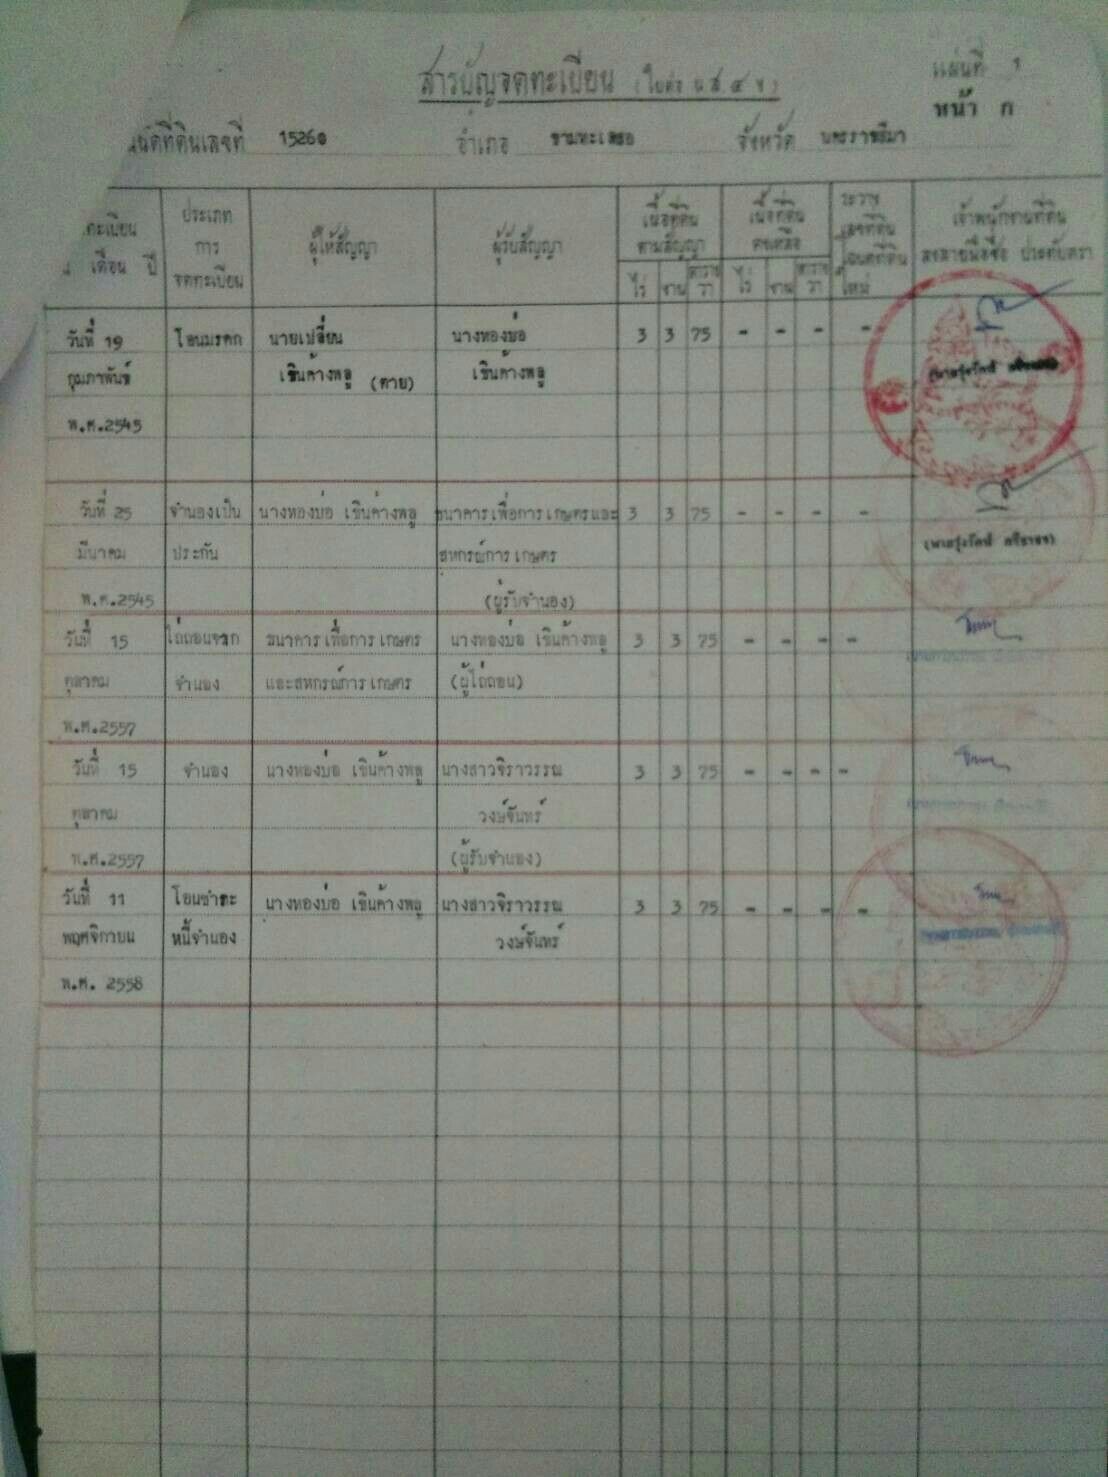 สารบัญจดทะเบียน (ใบต่อ น.ส. ๔ จ)
แผ่นที่ 1
หน้า ก
ที่ดินเลขที่ 15260 อำเภอ ขามทะเลสอ จังหวัด นครราชสีมา
ทะเบียน
เดือน ปี
ประเภท
การ
จดทะเบียน
ผู้ให้สัญญา
ผู้รับสัญญา
เนื้อที่ดิน
ตามสัญญา
ไร่ งาน ตาราง
วา
เนื้อที่ดิน
คงเหลือ
ไร่ งาน ตาราง
วา
ระวาง
เลขที่ดิน
โฉนดที่ดิน
ใหม่
เจ้าพนักงานที่ดิน
ลงลายมือชื่อ ประทับตรา
วันที่ 19 โอนมรดก นายเปลี่ยน นางทองบ่อ 3 3 75 - - - -
กุมภาพันธ์ เขินค้างพลู (ตาย) เขินค้างพลู
พ.ศ.2545
วันที่ 25 จำนองเป็น นางทองบ่อ เขินค้างพลู ธนาคารเพื่อการเกษตรและ 3 3 75 - - - -
มีนาคม ประกัน สหกรณ์การเกษตร
พ.ศ.2545 (ผู้รับจำนอง)
วันที่ 15 ไถ่ถอนจาก ธนาคารเพื่อการเกษตร นางทองบ่อ เขินค้างพลู 3 3 75 - - - -
ตุลาคม จำนอง และสหกรณ์การเกษตร (ผู้ไถ่ถอน)
พ.ศ.2557
วันที่ 15 จำนอง นางทองบ่อ เขินค้างพลู นางสาวจิราวรรณ 3 3 75 - - - -
ตุลาคม วงษ์จันทร์
พ.ศ.2557 (ผู้รับจำนอง)
วันที่ 11 โอนชำระ นางทองบ่อ เขินค้างพลู นางสาวจิราวรรณ 3 3 75 - - - -
พฤศจิกายน หนี้จำนอง วงษ์จันทร์
พ.ศ. 2558